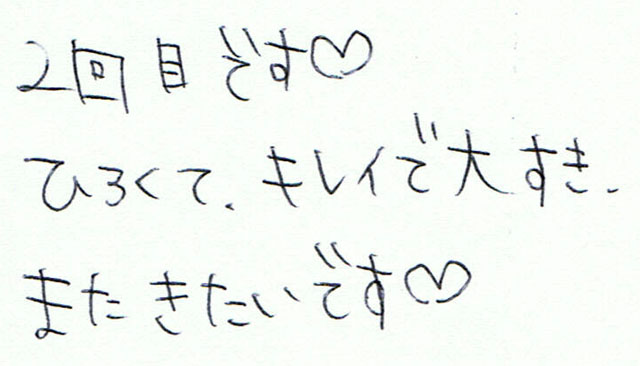 2回目です♡
ひろくて、キレイで大すき、
またきたいです♡